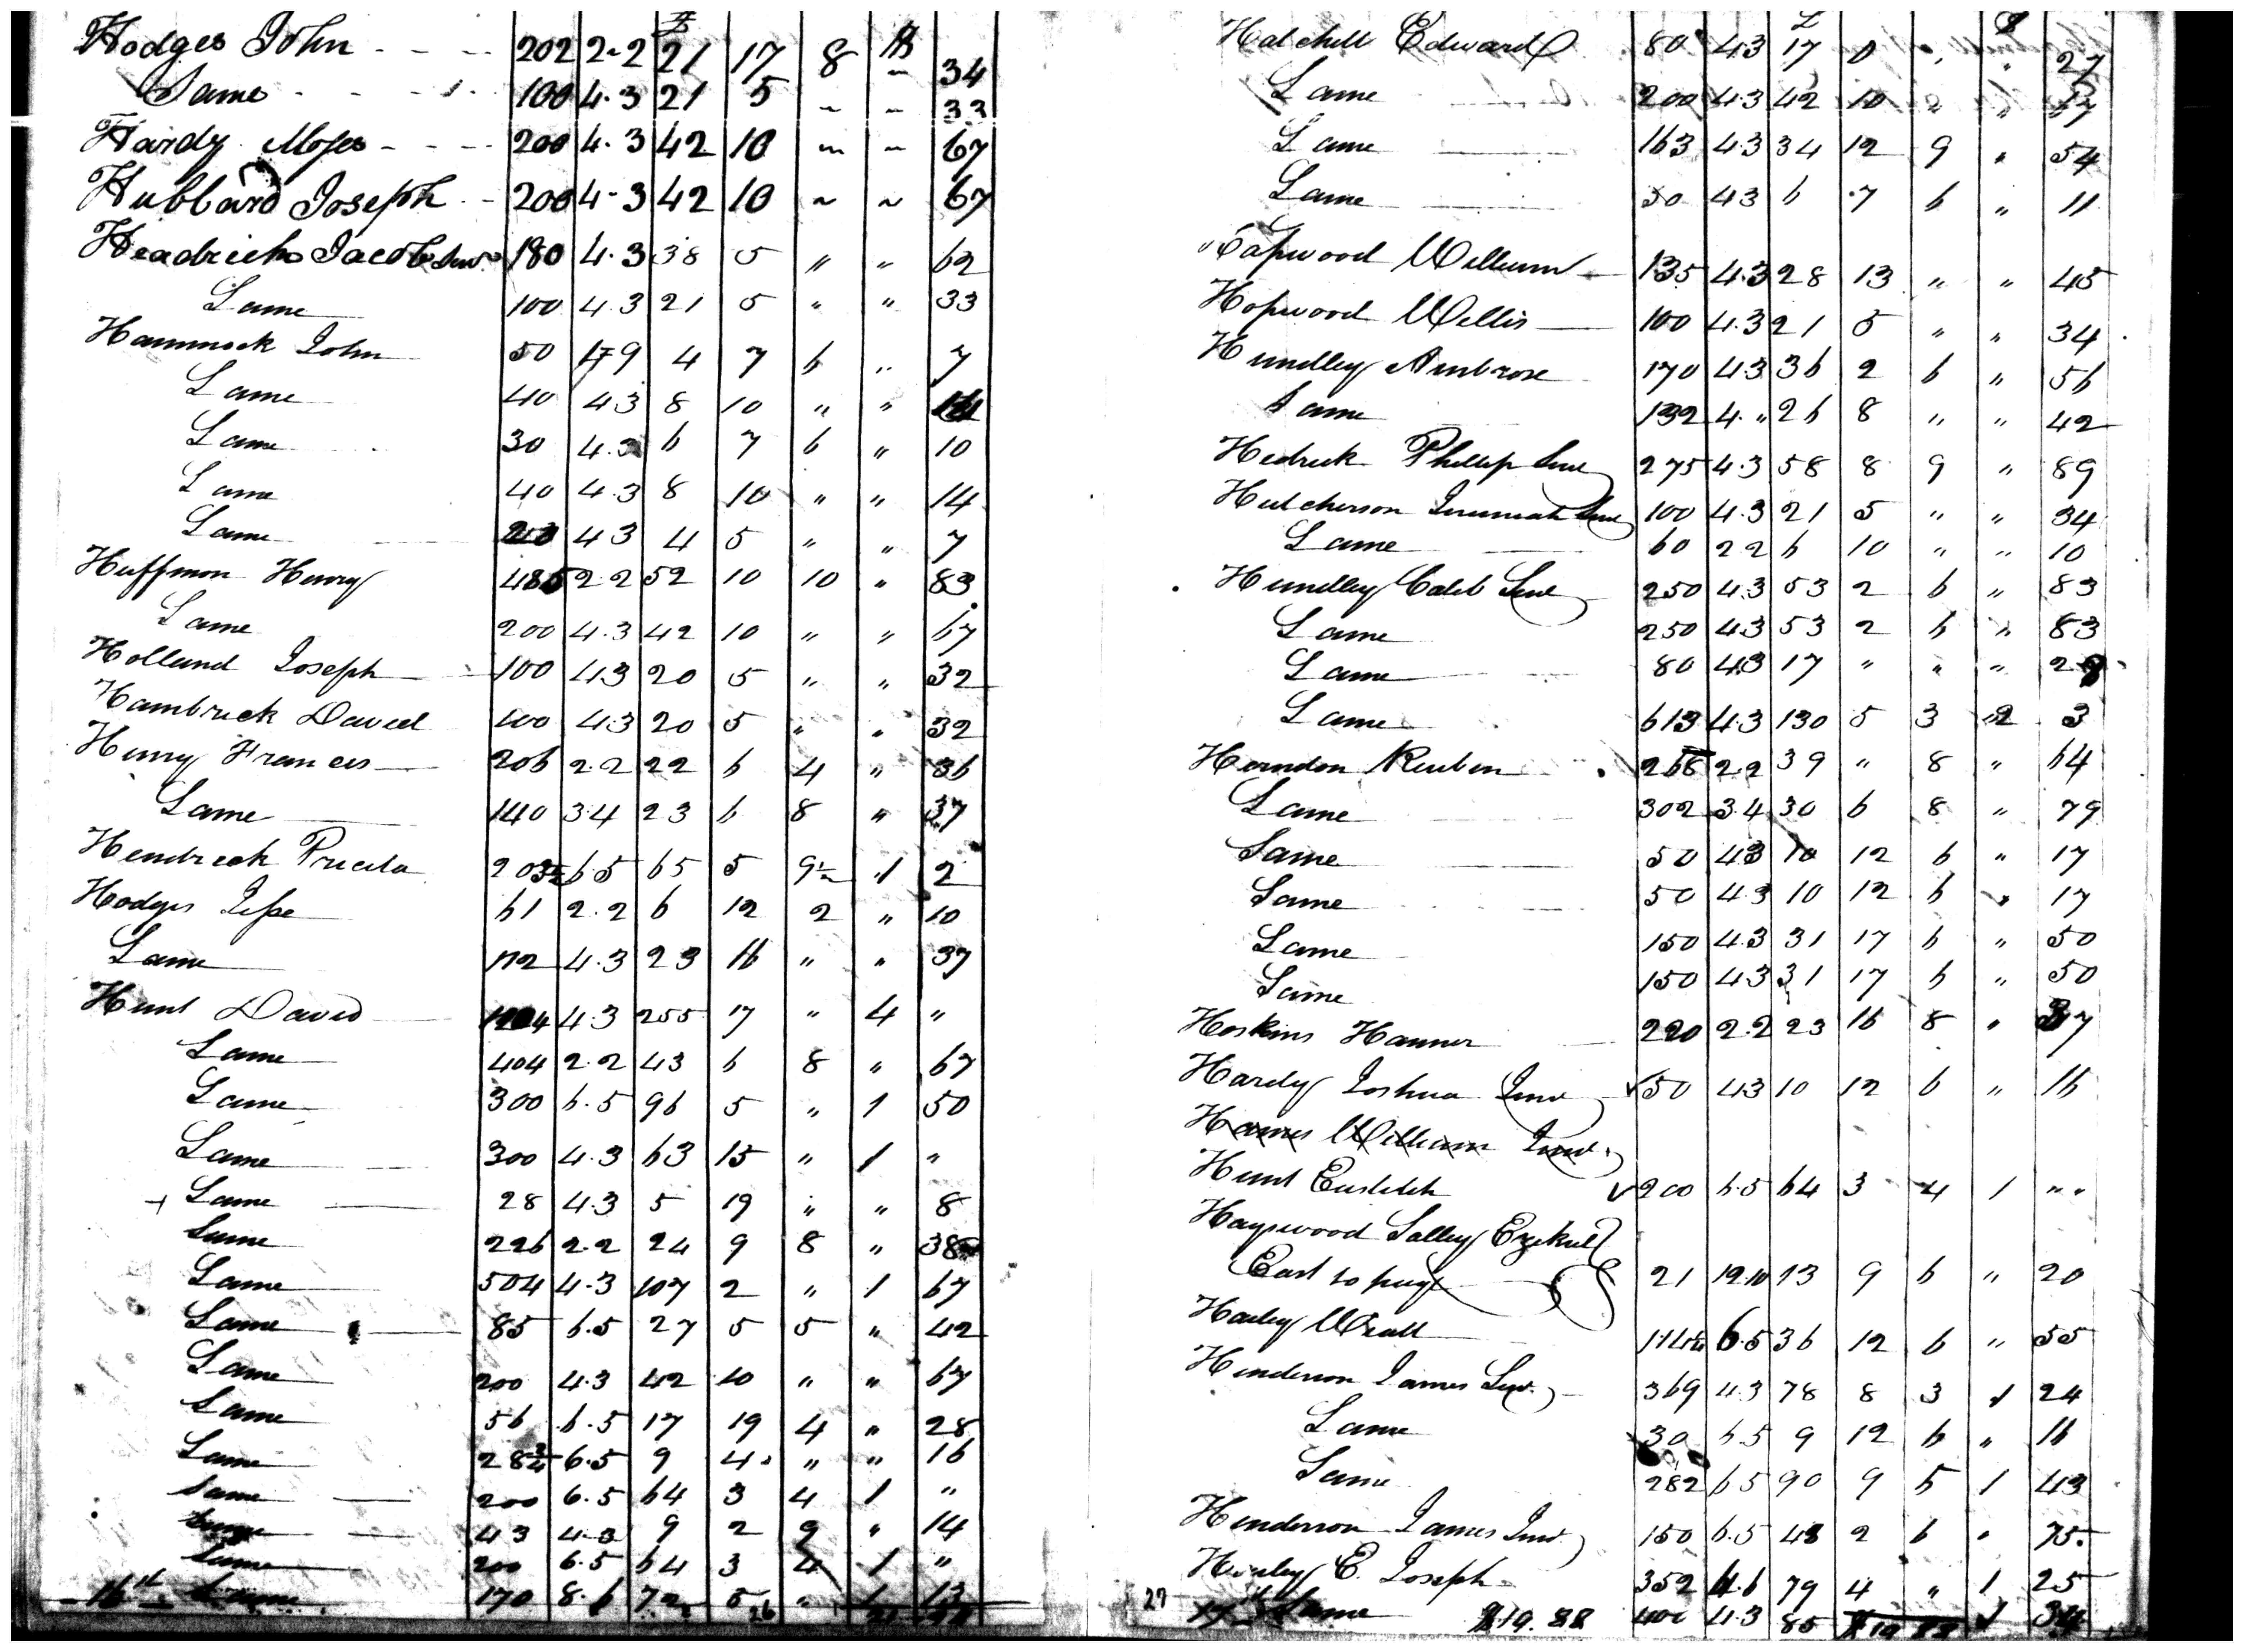 £ $
Hodges John - - - 202 2-2 21 17 8 ~ 34
Same - - - 100 4.3 21 5 ~ ~ 33
Hardy Moses - - - 200 4.3 42 10 ~ ~ 67
Hubbard Joseph - 200 4-3 42 10 ~ ~ 67
Headricks Jacob Senr 180 4.3 38 5 " " 62
Same 100 4.3 21 5 " " 33
Hammock John 50 1-9 4 7 6 " 7
Same 40 4 3 8 10 " "
Same 30 4.3 6 7 6 " 10
Same 40 4.3 8 10 " " 14
Same 20 4 3 4 5 " " 7
Huffmon Henry 485 2 2 52 10 10 " 83
Same 200 4.3 42 10 " " 67
Holland Joseph 100 4.3 20 5 " " 32
Hambrick David 100 4.3 20 5 " " 32
Henry Frances 206 2.2 22 6 4 " 36
Same 140 3.4 23 6 8 " 37
Hendreck 203½ 6 5 65 5 9½ 1 2
Hodges Jesse 61 2.2 6 12 2 " 10
Same 112 4.3 23 16 " " 37
Hunt David 1204 4.3 255 17 " 4 "
Same 404 2.2 43 6 8 " 67
Same 300 6.5 96 5 " 1 50
Same 300 4.3 63 15 " 1 "
Same 28 4.3 5 19 " " 8
Same 226 2.2 24 9 8 " 38
Same 504 4.3 107 2 " 1 67
Same 85 6.5 27 5 5 " 42
Same 200 4.3 42 10 " " 67
Same 56 6.5 17 19 4 " 28
Same 28¾ 6.5 9 4 " " 16
Same 200 6.5 64 3 4 1 "
Same 43 4.3 9 2 9 " 14
Same 200 6.5 64 3 4 1 "
16th Same 170 8.6 72 5 " 1 13
26
£ $
Hatchell Edward 80 4.3 17 0 " " 27
Same 200 4.3 42 10 " " 67
Same 163 4.3 34 12 9 " 54
Same 30 4 3 6 7 6 " 11
Hapwood William 135 4.3 28 13 " " 45
Hopwood Willis 100 4.3 21 5 " " 34
Hundley Ambrose 170 4.3 36 2 6 " 56
Same 132 4." 26 8 " " 42
Hedrick Phillip Senr 275 4.3 58 8 9 " 89
Hutcherson Jeremiah Senr 100 4.3 21 5 " " 34
Same 60 2 2 6 10 " " 10
Hundley Caleb Senr 250 4.3 53 2 6 " 83
Same 250 4.3 53 2 6 " 83
Same 80 4.3 17 " " "
Same 613 4.3 130 5 3 2 3
Herndon Reuben 268 2.2 39 " 8 " 64
Same 302 3.4 30 6 8 " 79
Same 50 4.3 10 12 6 " 17
Same 50 4.3 10 12 6 " 17
Same 150 4.3 31 17 6 " 50
Same 150 4.3 31 17 6 " 50
Hoskins Hanner 220 2.2 23 16 8 " 37
Hardy Joshua Junr 50 4.3 10 12 6 " 16
William Junr
Hunt 200 6.5 64 3 4 1 ""
Hayswood Salley Ezekiel
East to pay 21 12.10 13 9 6 " 20
Harley 6.5 36 12 6 " 55
Henderson James Senr 369 4.3 78 8 3 1 24
Same 30 6 5 9 12 6 " 16
Same 282 6 5 90 9 5 1 43
Henderson James Junr 150 6.5 48 2 6 " 75
Henley E. Joseph 352 4.6 79 4 " 1 25
27 17th Same $19.88 400 4.3 85 $19 88 1 34